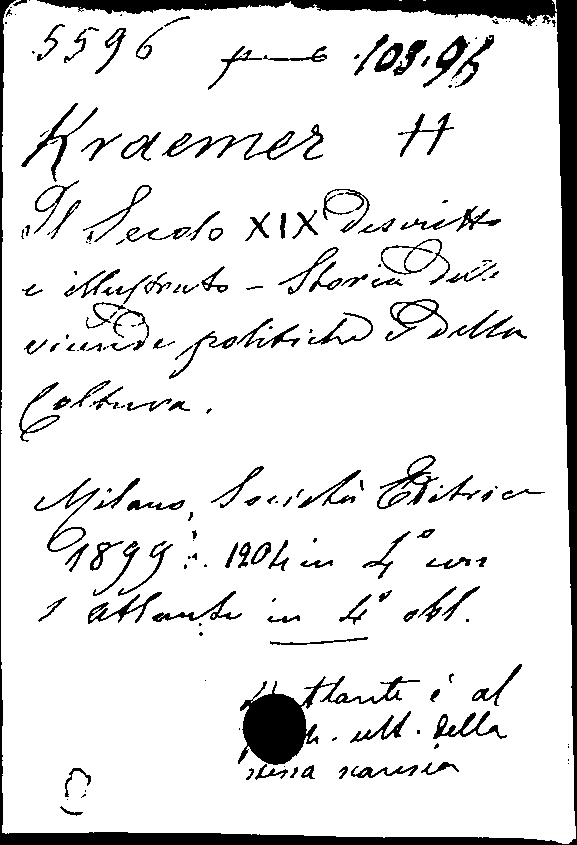 5596 108.96
Kraemer H
Il Secolo XIX descritto
e illustrato - Storia delle
vicende politiche e della
Coltura.
Milano, Società Editrice
1899 in 4° con
1 atlante in 4° obl.
atlante è al
ult. della